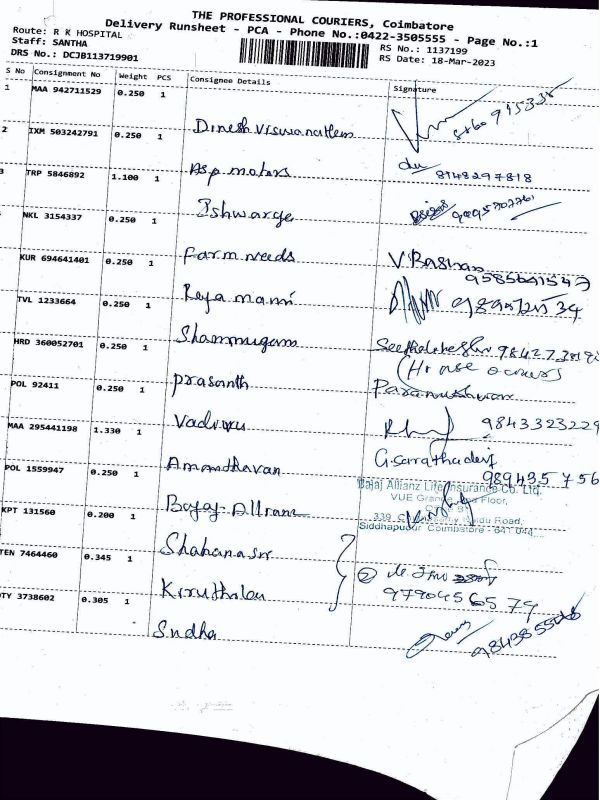 THE PROFESSIONAL COURIERS, Coimbatore
Delivery Runsheet - PCA - Phone No.:0422-3505555 - Page No.:1
Route: R K HOSPITAL
Staff: SANTHA
DRS No.: DCJB113719901
RS No.: 1137199
RS Date: 18-Mar-2023
S No Consignment No Weight PCS Consignee Details Signature
1 MAA 942711529 0.250 1
Dinesh Viswanathan
2 IXM 503242791 0.250 1
Asp motors 8148297818
3 TRP 5846892 1.100 1
Ishwarya
NKL 3154337 0.250 1
Farm needs V.Baskaran
KUR 694641401 0.250 1
Raja mani
TVL 1233664 0.250 1
Shanmugam
HRD 360052701 0.250 1
(House owners
prasanth
POL 92411 0.250 1
Vadivu 9843323229
MAA 295441198 1.330 1
G.sarathadevi
Amandhavan 989435 756
POL 1559947 0.250 1
Bajaj Allianz Life Insurance Co. Ltd.,
VUE Grande, Floor,
Bajaj Allianz
KPT 131560 0.200 1
339, Naidu Road,
Siddhapudur Coimbatore - 641 044.
Shahanas
TEN 7464460 0.345 1
Kiruthika 9790456579
OTY 3738602 0.305 1
Sudha